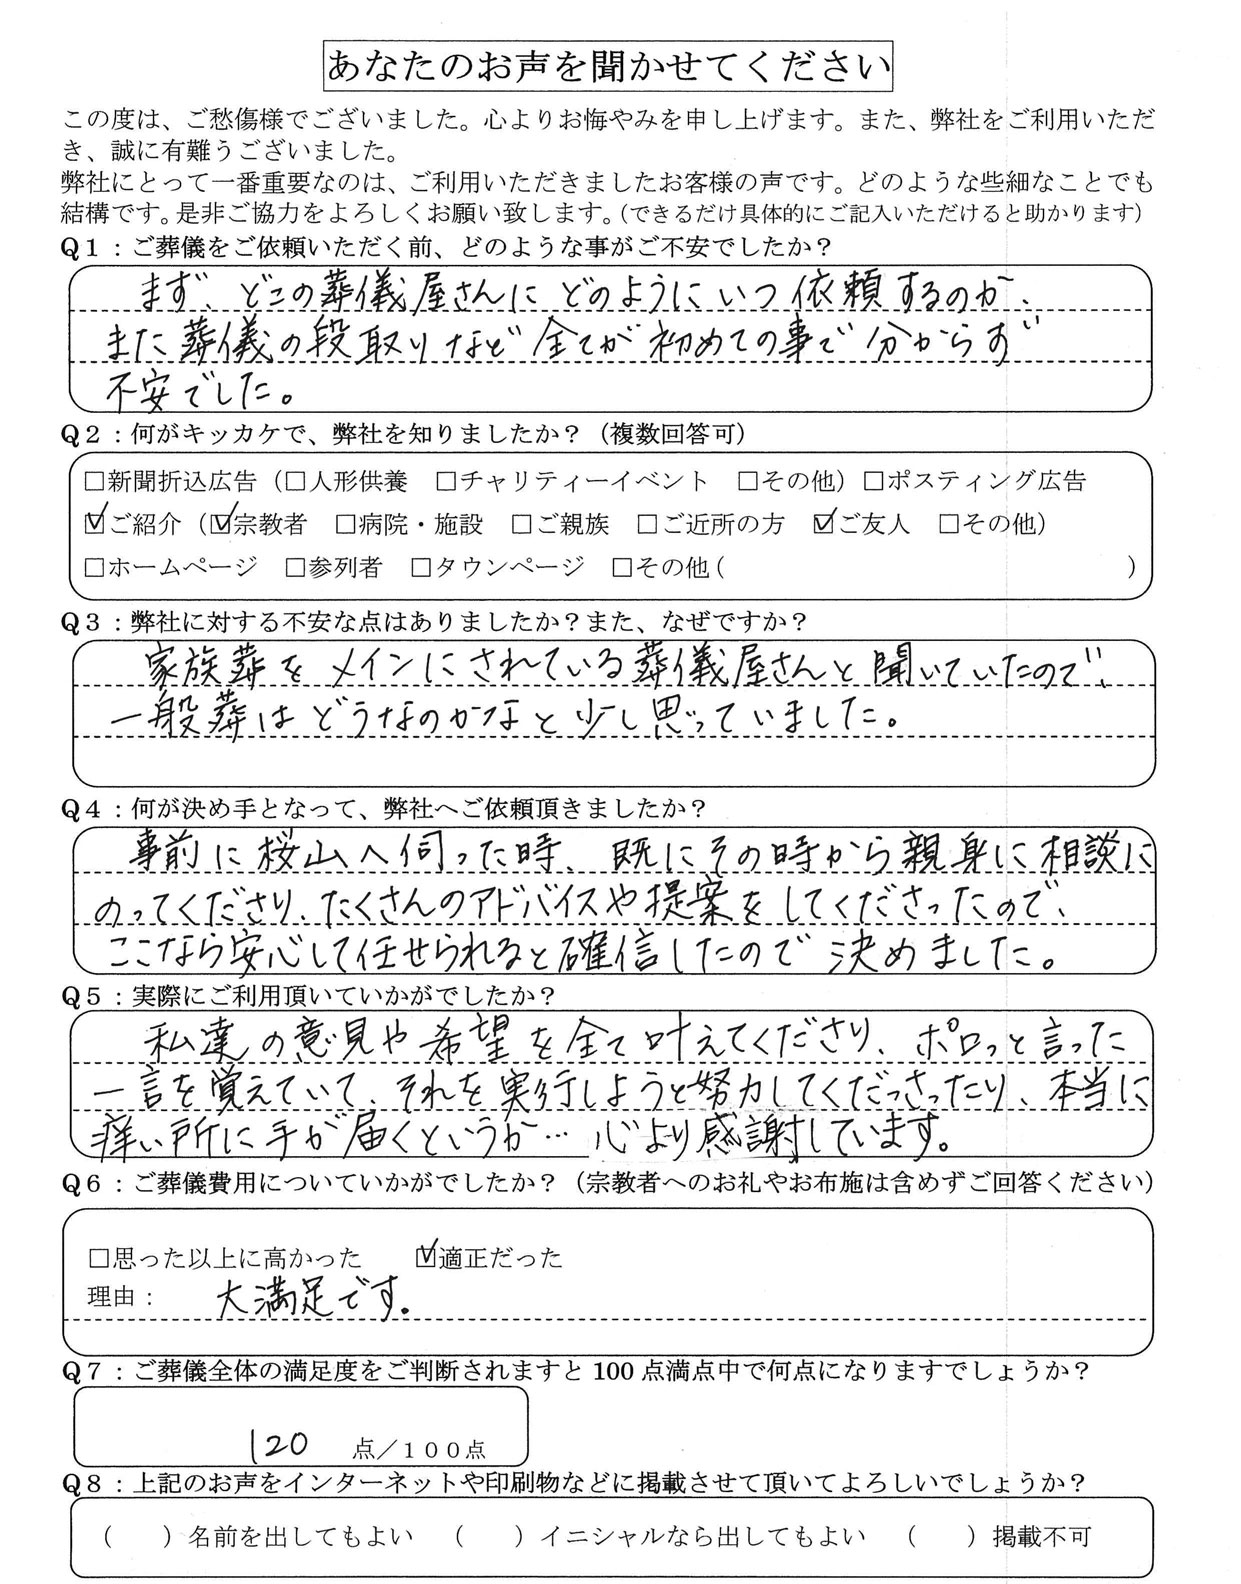 あなたのお声を聞かせてください
この度は、ご愁傷様でございました。心よりお悔やみを申し上げます。また、弊社をご利用いただ
き、誠に有難うございました。
弊社にとって一番重要なのは、ご利用いただきましたお客様の声です。どのような些細なことでも
結構です。是非ご協力をよろしくお願い致します。（できるだけ具体的にご記入いただけると助かります）
Q１：ご葬儀をご依頼いただく前、どのような事がご不安でしたか？
まず、どこの葬儀屋さんにどのようにいつ依頼するのか、
また葬儀の段取りなど全てが初めての事で分からず
不安でした。
Q２：何がキッカケで、弊社を知りましたか？（複数回答可）
□新聞折込広告（□人形供養　□チャリティーイベント　□その他）□ポスティング広告
☑ご紹介（☑宗教者　□病院・施設　□ご親族　□ご近所の方　☑ご友人　□その他）
□ホームページ　□参列者　□タウンページ　□その他（　　　）
Q３：弊社に対する不安な点はありましたか？また、なぜですか？
家族葬をメインにされている葬儀屋さんと聞いていたので、
一般葬はどうなのかなと少し思っていました。
Q４：何が決め手となって、弊社へご依頼頂きましたか？
事前に桜山へ伺った時、既にその時から親身に相談に
のってくださり、たくさんのアドバイスや提案をしてくださったので、
ここなら安心して任せられると確信したので決めました。
Q５：実際にご利用頂いていかがでしたか？
私達の意見や希望を全て叶えてくださり、ポロっと言った
一言を覚えていて、それを実行しようと努力してくだっさったり、本当に
痒い所に手が届くというか…心より感謝しています。
Q６：ご葬儀費用についていかがでしたか？（宗教者へのお礼やお布施は含めずご回答ください）
□思った以上に高かった　☑適正だった
理由：　大満足です。
Q７：ご葬儀全体の満足度をご判断されますと 100 点満点中で何点になりますでしょうか？
120　点／１００点
Q８：上記のお声をインターネットや印刷物などに掲載させて頂いてよろしいでしょうか？
（　　）名前を出してもよい　（　　）イニシャルなら出してもよい　（　　）掲載不可